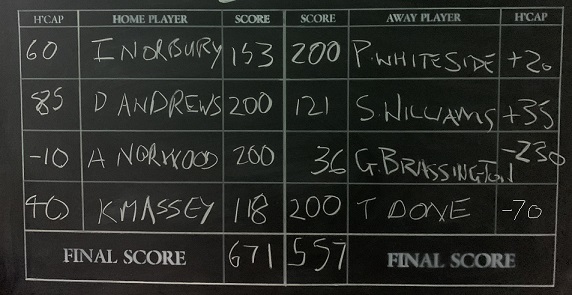 H'CAP HOME PLAYER SCORE SCORE AWAY PLAYER H'CAP
60 I NORBURY 153 200 P. WHITESIDE +20
85 D ANDREWS 200 121 S. WILLIAMS +35
-10 A NORWOOD 200 36 G. BRASSINGTON -230
40 K MASSEY 118 200 T DONE -70
FINAL SCORE 671 557 FINAL SCORE